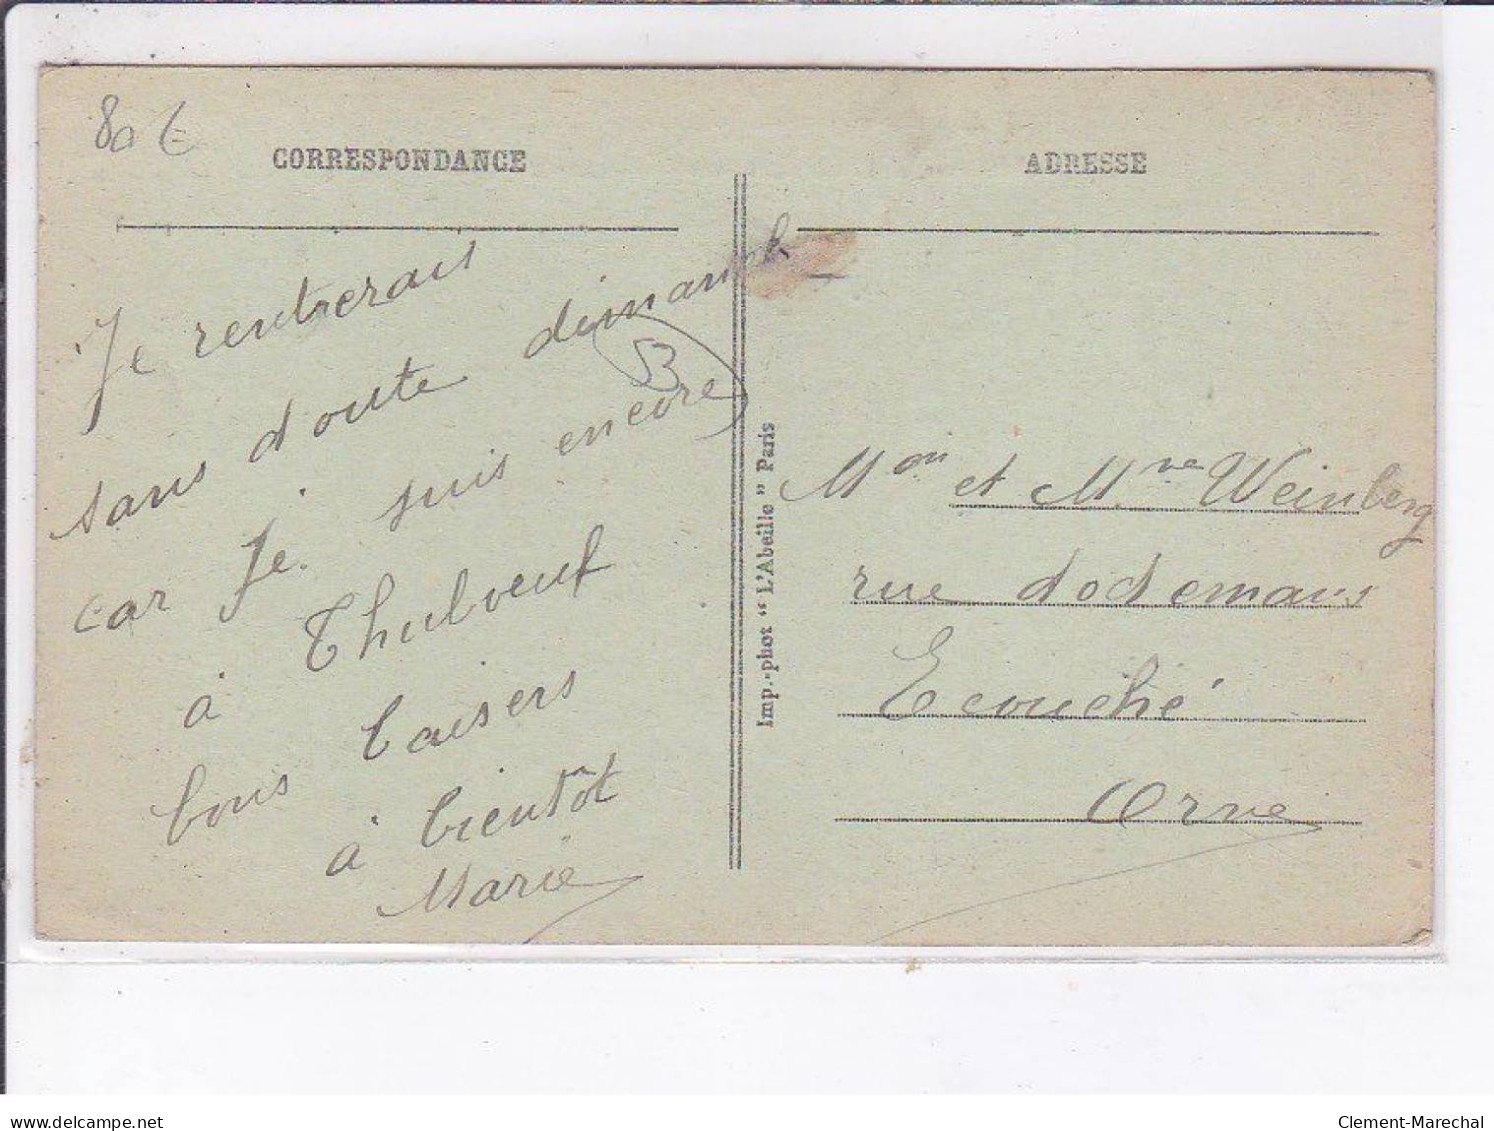 80 €
CORRESPONDANCE
Je rentrerais
sans doute dimanch
car Je suis encore
à Thubœuf
bons baisers
à bientôt
Marie
B
Imp.-phot "L'Abeille" Paris
ADRESSE
Mon et Mme Weinberg
rue dodemans
Ecouché
Orne
delcampe.net
Clement-Marechal